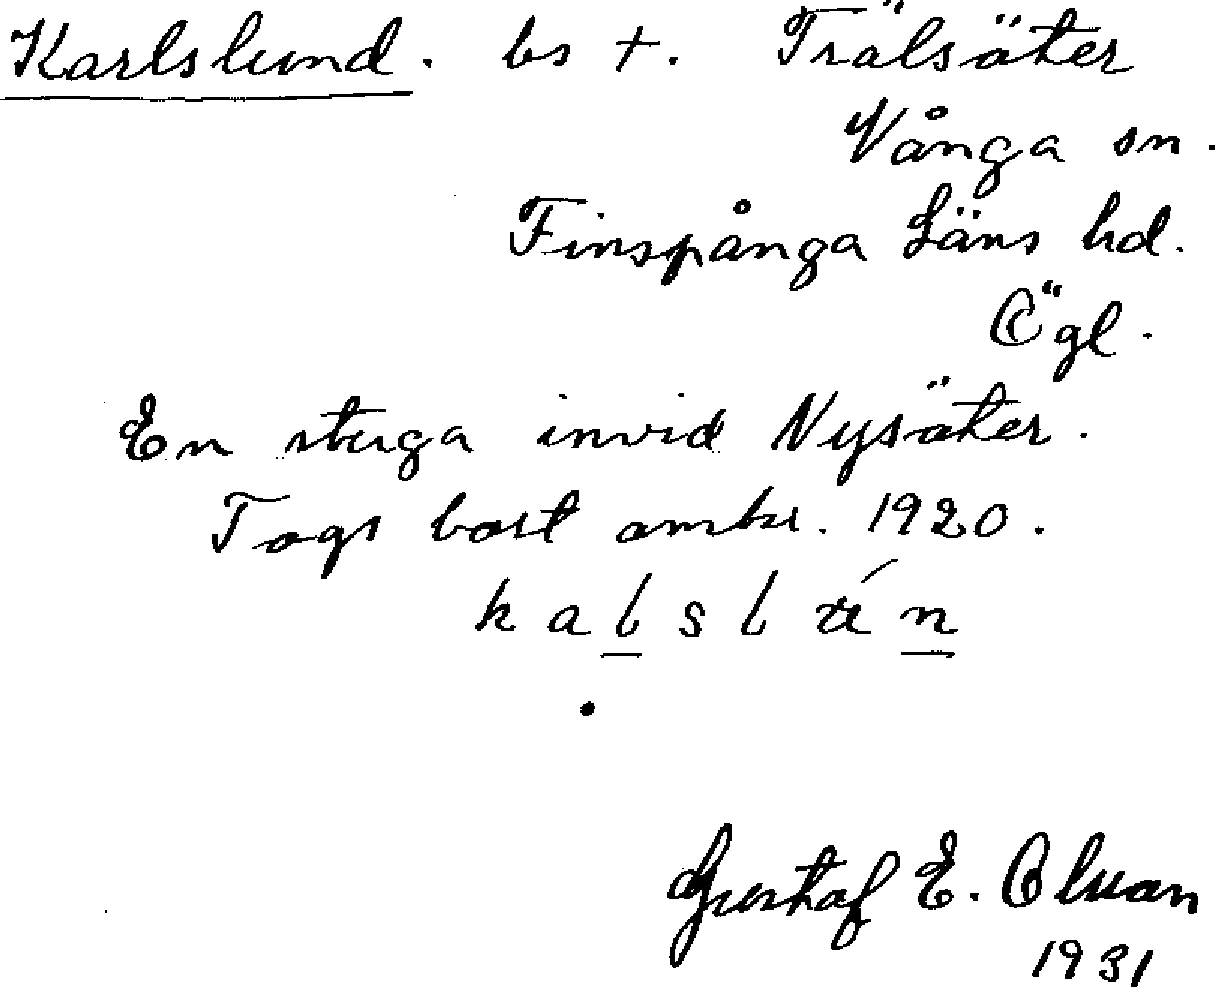 Karlslund. bs +. Trälsäter
Vånga sn.
Finspånga Läns hd.
Ögl.
En stuga invid Nysäter.
Togs bort omkr. 1920.
k a l s l n
Gustaf E. Olsson
1931